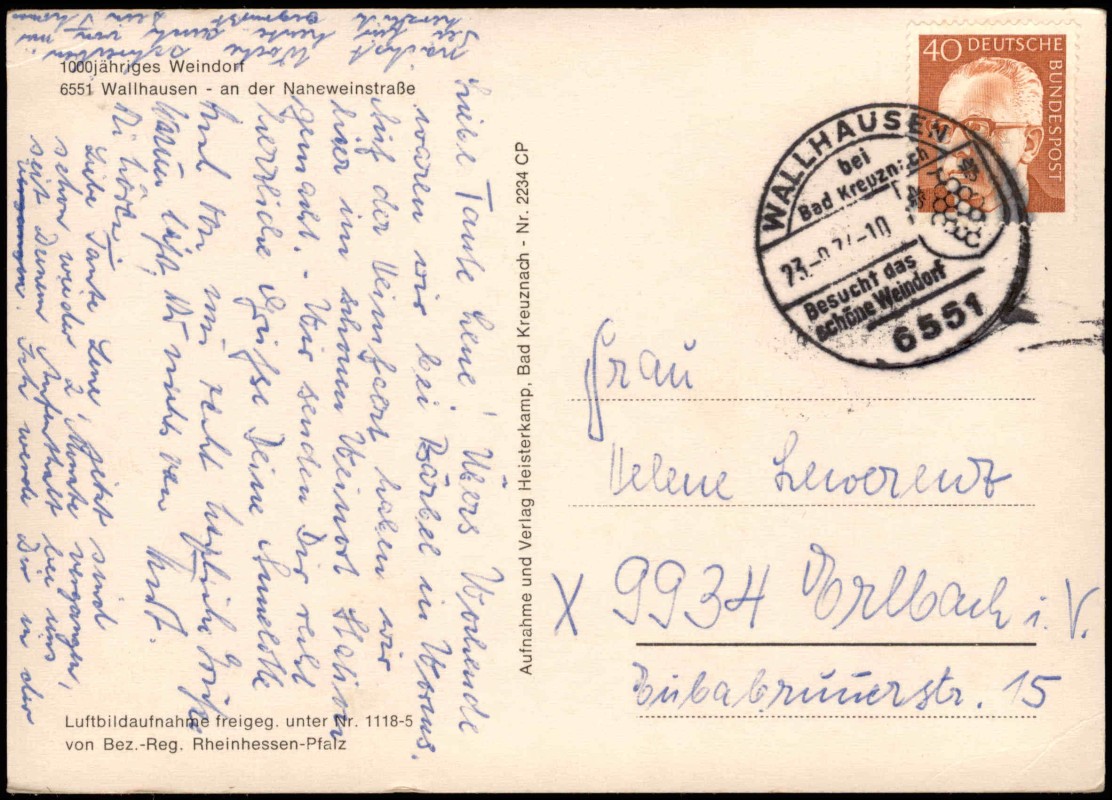 1000jähriges Weindorf
6551 Wallhausen - an der Naheweinstraße
Liebe Tante Lene! Übers Wochende
waren wir bei Bärbel in Worms.
Auf der Heimfahrt haben wir
hier im schönen Weinort Station
gemacht. - Wir senden Dir recht
herzliche Grüße Deine Annelotte
und von mir recht herzliche Grüße
Warum läßt Du nichts von
Dir hören? Kurt.
Liebe Tante Lene, jetzt sind
schon wieder 2 Monate vergangen,
seit Deinem Aufenthalt bei uns
vergangen. Ich werde Dir in der
nächst Woche schreiben!
Sei für heute
herzlich gegrüßt Dein
Luftbildaufnahme freigeg. unter Nr. 1118-5
von Bez.-Reg. Rheinhessen-Pfalz
Aufnahme und Verlag Heisterkamp, Bad Kreuznach - Nr. 2234 CP
40 DEUTSCHE
BUNDESPOST
WALLHAUSEN
bei
Bad Kreuznach
23.
Besucht das
schöne Weindorf
6551
Frau
Helene Lewerenz
X 9934 Erlbach i. V.
Eubabrunnerstr. 15